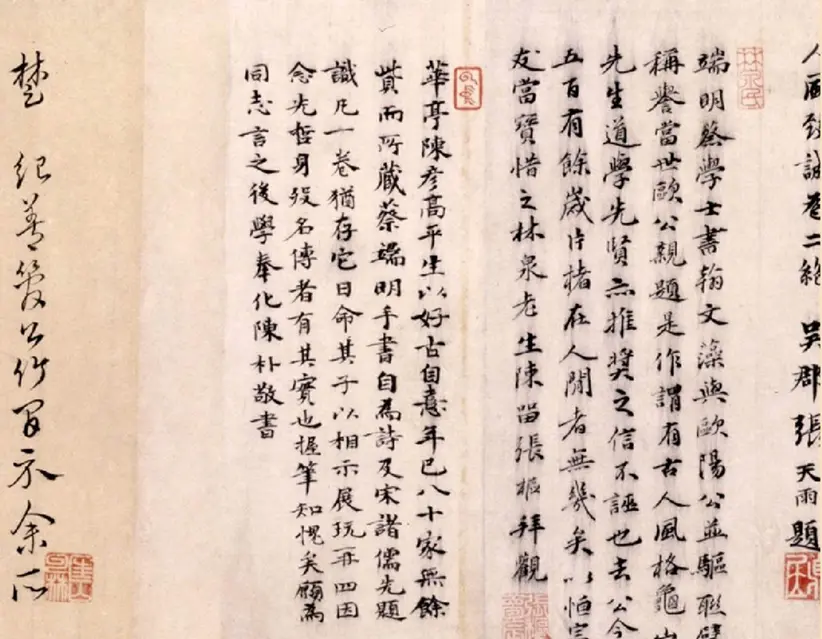 吳郡張天雨題
端明蔡學士書翰文藻與歐陽公並驅聯
稱譽當世歐公親題是作謂有古人風格龜山
先生道學先賢亦推獎之信不誣也去公今
五百有餘歲片楮在人間者無幾矣以恒
友當寶惜之林泉老生陳畱張樞拜觀
華亭陳彥高平生以好古自憙年已八十家無餘
貲而所藏蔡端明手書自為詩及宋諸儒先題
識凡一卷猶存它日命其子以相示展玩再四因
念先哲身歿名傳者有其實也握筆知愧矣願為
同志言之後學奉化陳朴敬書
楚 紀善 公竹間示余